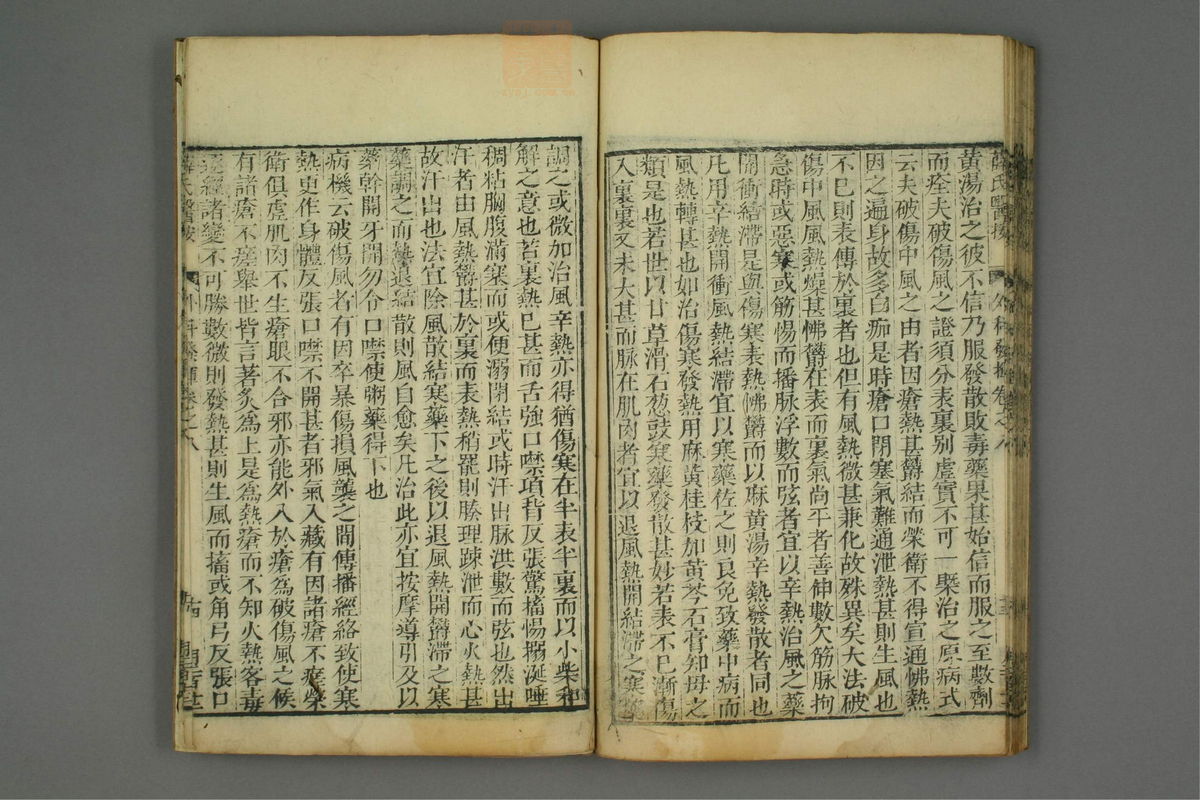 薛氏醫按 外科發揮卷之八
黃湯治之彼不信乃服發散敗毒藥果甚始信而服之至數劑
而痊夫破傷風之證須分表裏别虛實不可一槩治之原病式
云夫破傷中風之由者因瘡熱甚欝結而榮衛不得宣通怫熱
因之遍身故多白痂是時瘡口閉塞氣難通泄熱甚則生風也
不已則表傳於裏者也但有風熱微甚兼化故殊異矣大法破
傷中風風熱燥甚怫欝在表而裏氣尚平者善伸數欠筋脉拘
急時或惡寒或筋惕而播脉浮數而弦者宜以辛熱治風之藥
開衝結滯是與傷寒表熱怫欝而以麻黃湯辛熱發散者同也
凡用辛熱開衝風熱結滯宜以寒藥佐之則良免致藥中病而
風熱轉甚也如治傷寒發熱用麻黃桂枝加黃芩石膏知母之
類是也若世以甘草滑石葱豉寒藥發散甚妙若表不已漸傷
入裏裏又未大甚而脉在肌肉者宜以退風熱開結滯之寒藥
調之或微加治風辛熱亦得猶傷寒在半表半裏而以小柴和
解之意也若裏熱已甚而舌強口噤項背反張驚搐惕搦涎唾
稠粘胸腹滿塞而或便溺閉結或時汗出脉洪數而弦也然出
汗者由風熱欝甚於裏而表熱稍罷則腠理踈泄而心火熱甚
故汗出也法宜除風散結寒藥下之後以退風熱開欝滯之寒
藥調之而熱退結散則風自愈矣凡治此亦宜按摩導引及以
藥幹開牙開勿令口噤使粥藥得下也
病機云破傷風者有因卒暴傷損風襲之間傳播經絡致使寒
熱更作身體反張口噤不開甚者邪氣入藏有因諸瘡不瘥榮
衛俱虛肌肉不生瘡眼不合邪亦能外入於瘡爲破傷風之候
有諸瘡不瘥舉世皆言著灸爲上是爲熱瘡而不知火熱客毒
逐經諸變不可勝數微則發熱甚則生風而搐或角弓反張口
薛氏醫按 外科發揮卷之八